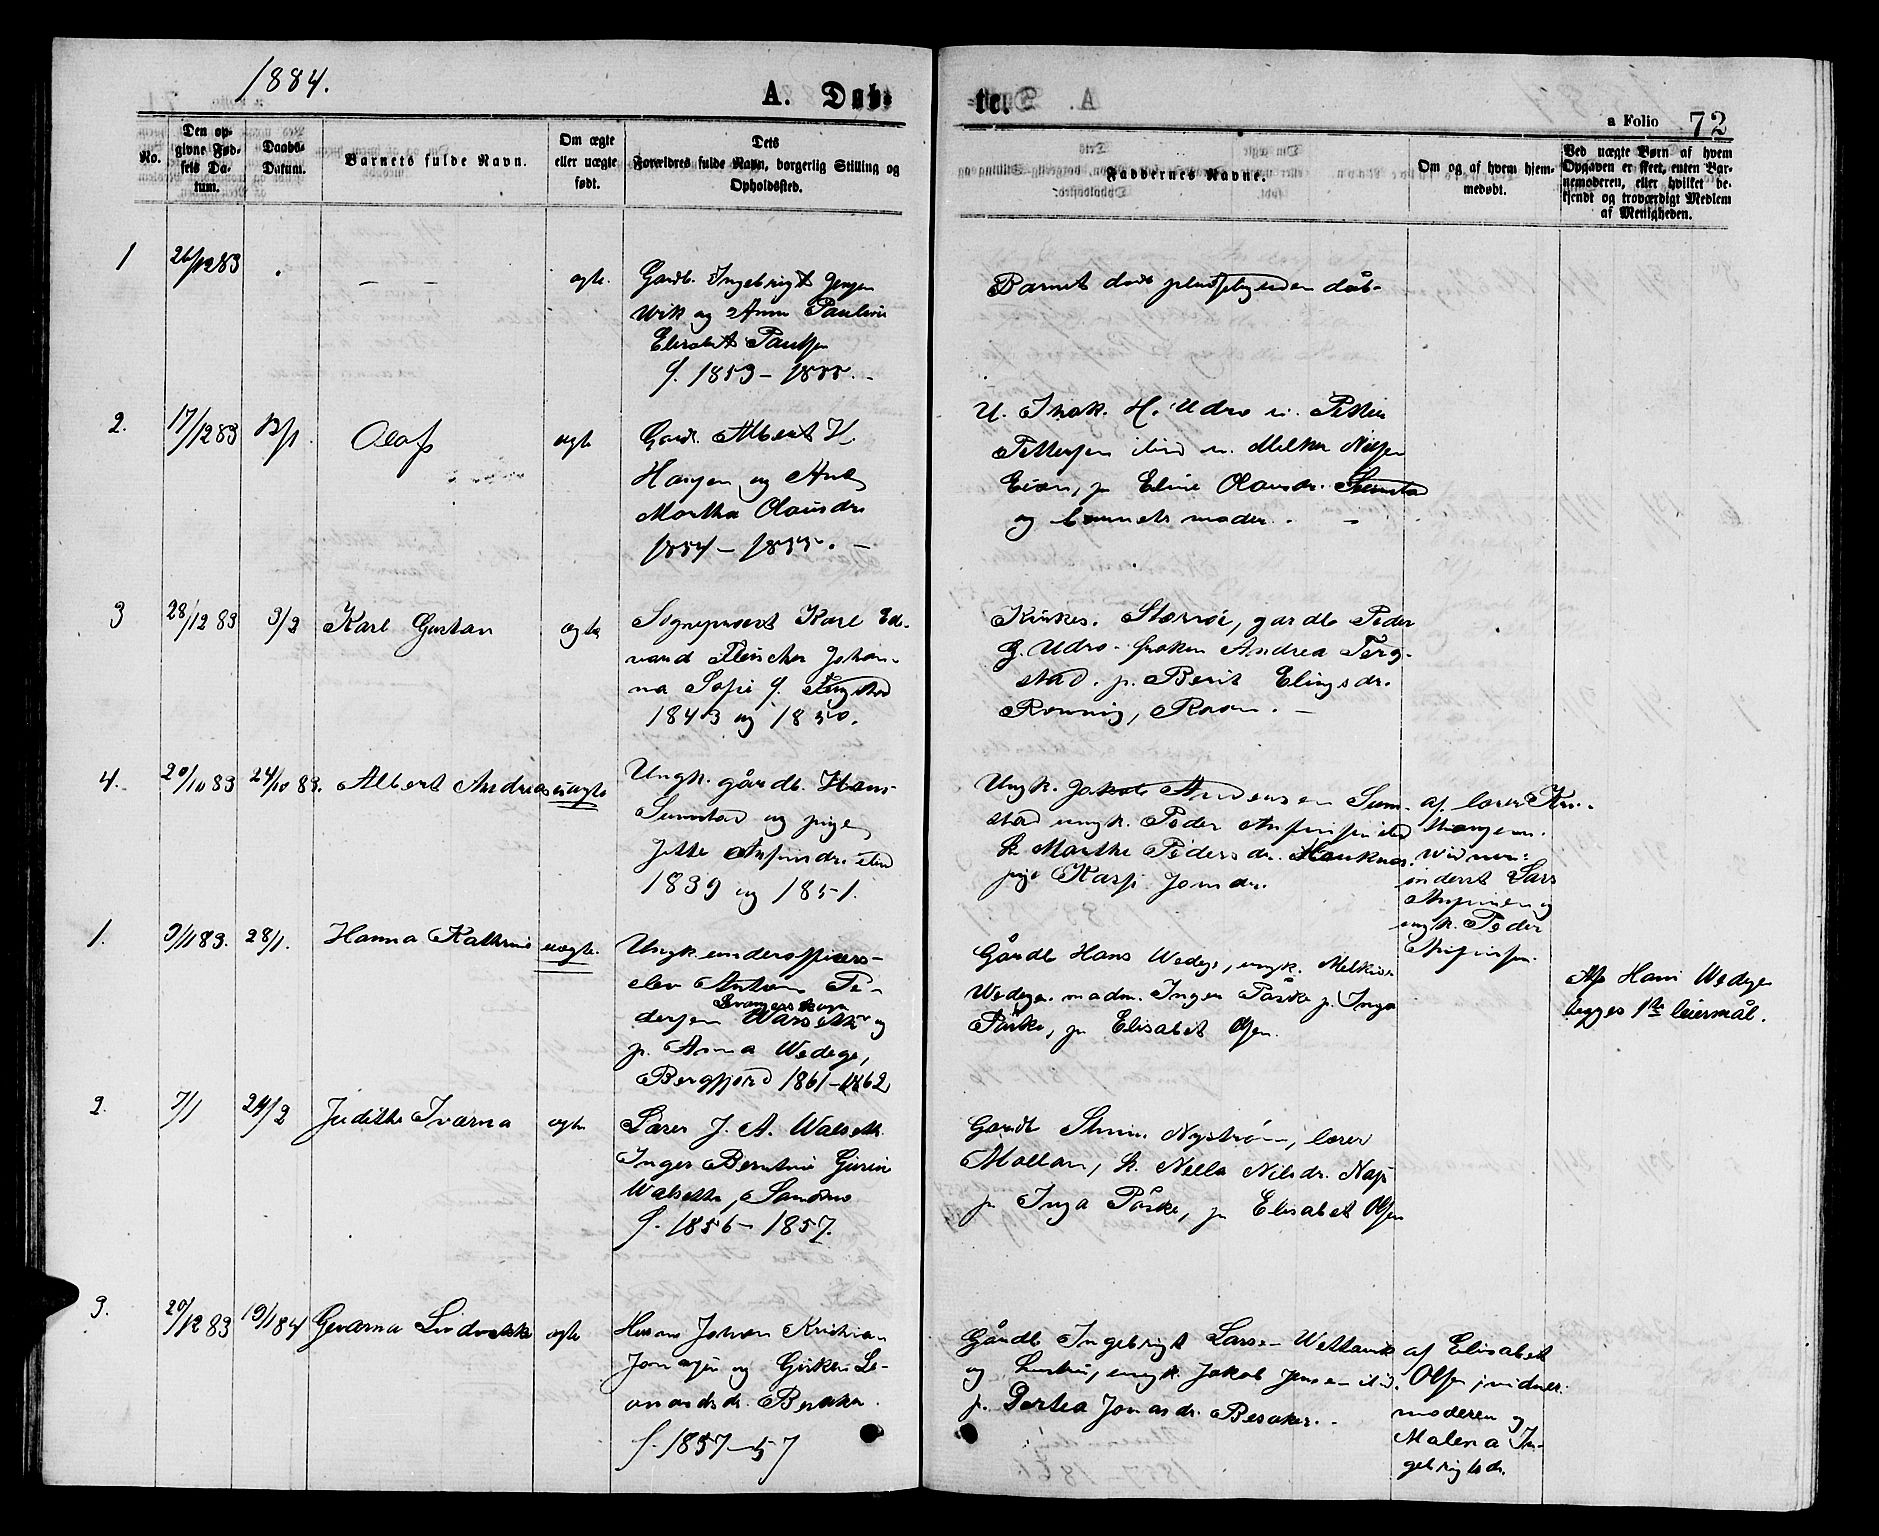 1884.
A. Døb-
te.
a Folio 72
No.
Den op-
givne Fød-
sels Da-
tum.
Daabs-
Datum.
Barnets fulde Navn.
Om ægte
eller uægte
født.
Dets
Forældres fulde Navn, borgerlig Stilling og
Opholdssted.
Faddernes Navne.
Om og af hvem hjem-
medøbt.
Ved uægte Børn af hvem
Opgaven er skeet, enten Bar-
nemoderen, eller hvilket be-
kjendt og troværdigt Medlem
af Menigheden.
1
26/12 83
— —
ægte.
Gaardb. Ingebrigt Jensen
Wik og Anna Pauline
Elisabet
f. 1853 – 1855. –
Barnet døde
dåb.
2.
17/12 83
13/1.
Olaf
ægte
Gaardb. Albert H.
Hansen og Ane
Martha Olausdr.
1854 – 1855. –
H. Udro u. Petter
Pettersen ibid u. Melker Nilsen
p. Eline Olausdr. Sumstad
og barnets moder. –
3
28/12 83
3/2
Karl Gustav
ægte
Sogneprest Karl Ed-
vard Fleischer Johan-
na Sofie f.
1843 og 1850.
Kirkes. Størsøi, gaardb. Peder
J. Udro – frøken Andrea
stad. p. Berit Elingsdr.
Rønnig, –
4.
20/10 83
24/10 83.
Albert Andreas
uægte
Ungk. gårdb. Hans
Sumstad og pige
Jette Anfinsdr. ibid
1839 og 1851.
Ungk. Jakob Andersen Sum-
stad ungk. Peder Anfinsen ibid
k. Marthe Pedersdr. Hauknes.
pige Jonsdr.
af lærer
vidner:
Lars
Anfinsen og
ungk. Peder
Anfinsen.
1.
3/1 83.
28/1.
Hanna Kathrine
uægte.
Ungk. underofficers-
elev Anton Pe-
dersen Walseth og
p. Anna Wedege,
Bergfjord 1861 – 1862
Gårdb Hans Wedege, ungk. Melkior
Wedege. madm. Inger Påske p. Inga
Påske, p. Elisabet Olsen.
Af Hans Wedege
begges 1ste leiermål.
2.
7/1
24/2
Judithe Ivarna
ægte
Lærer J. A. Walseth.
Inger Berntine
Walseth, Sandnes
f. 1856 – 1857.
Gaardb Nystrøm, lærer
Mollan, k. Nella Nilsdr.
p. Inga Påske, p Elisabet Olsen
3.
20/12 83
19/1 84
Geværna
ægte
Husm Johan Kristian
Jonassen og Le-
onardsdr. Besaker.
f. 1857 – 57
Gårdb Ingebrigt Larsen
og hustru, ungk. Jakob Jensen ibid.
p. Dortea Jonasdr. Besaker. –
af Elisabet
Olsen, vidner:
moderen og
Malena In-
gebrigtsdr.